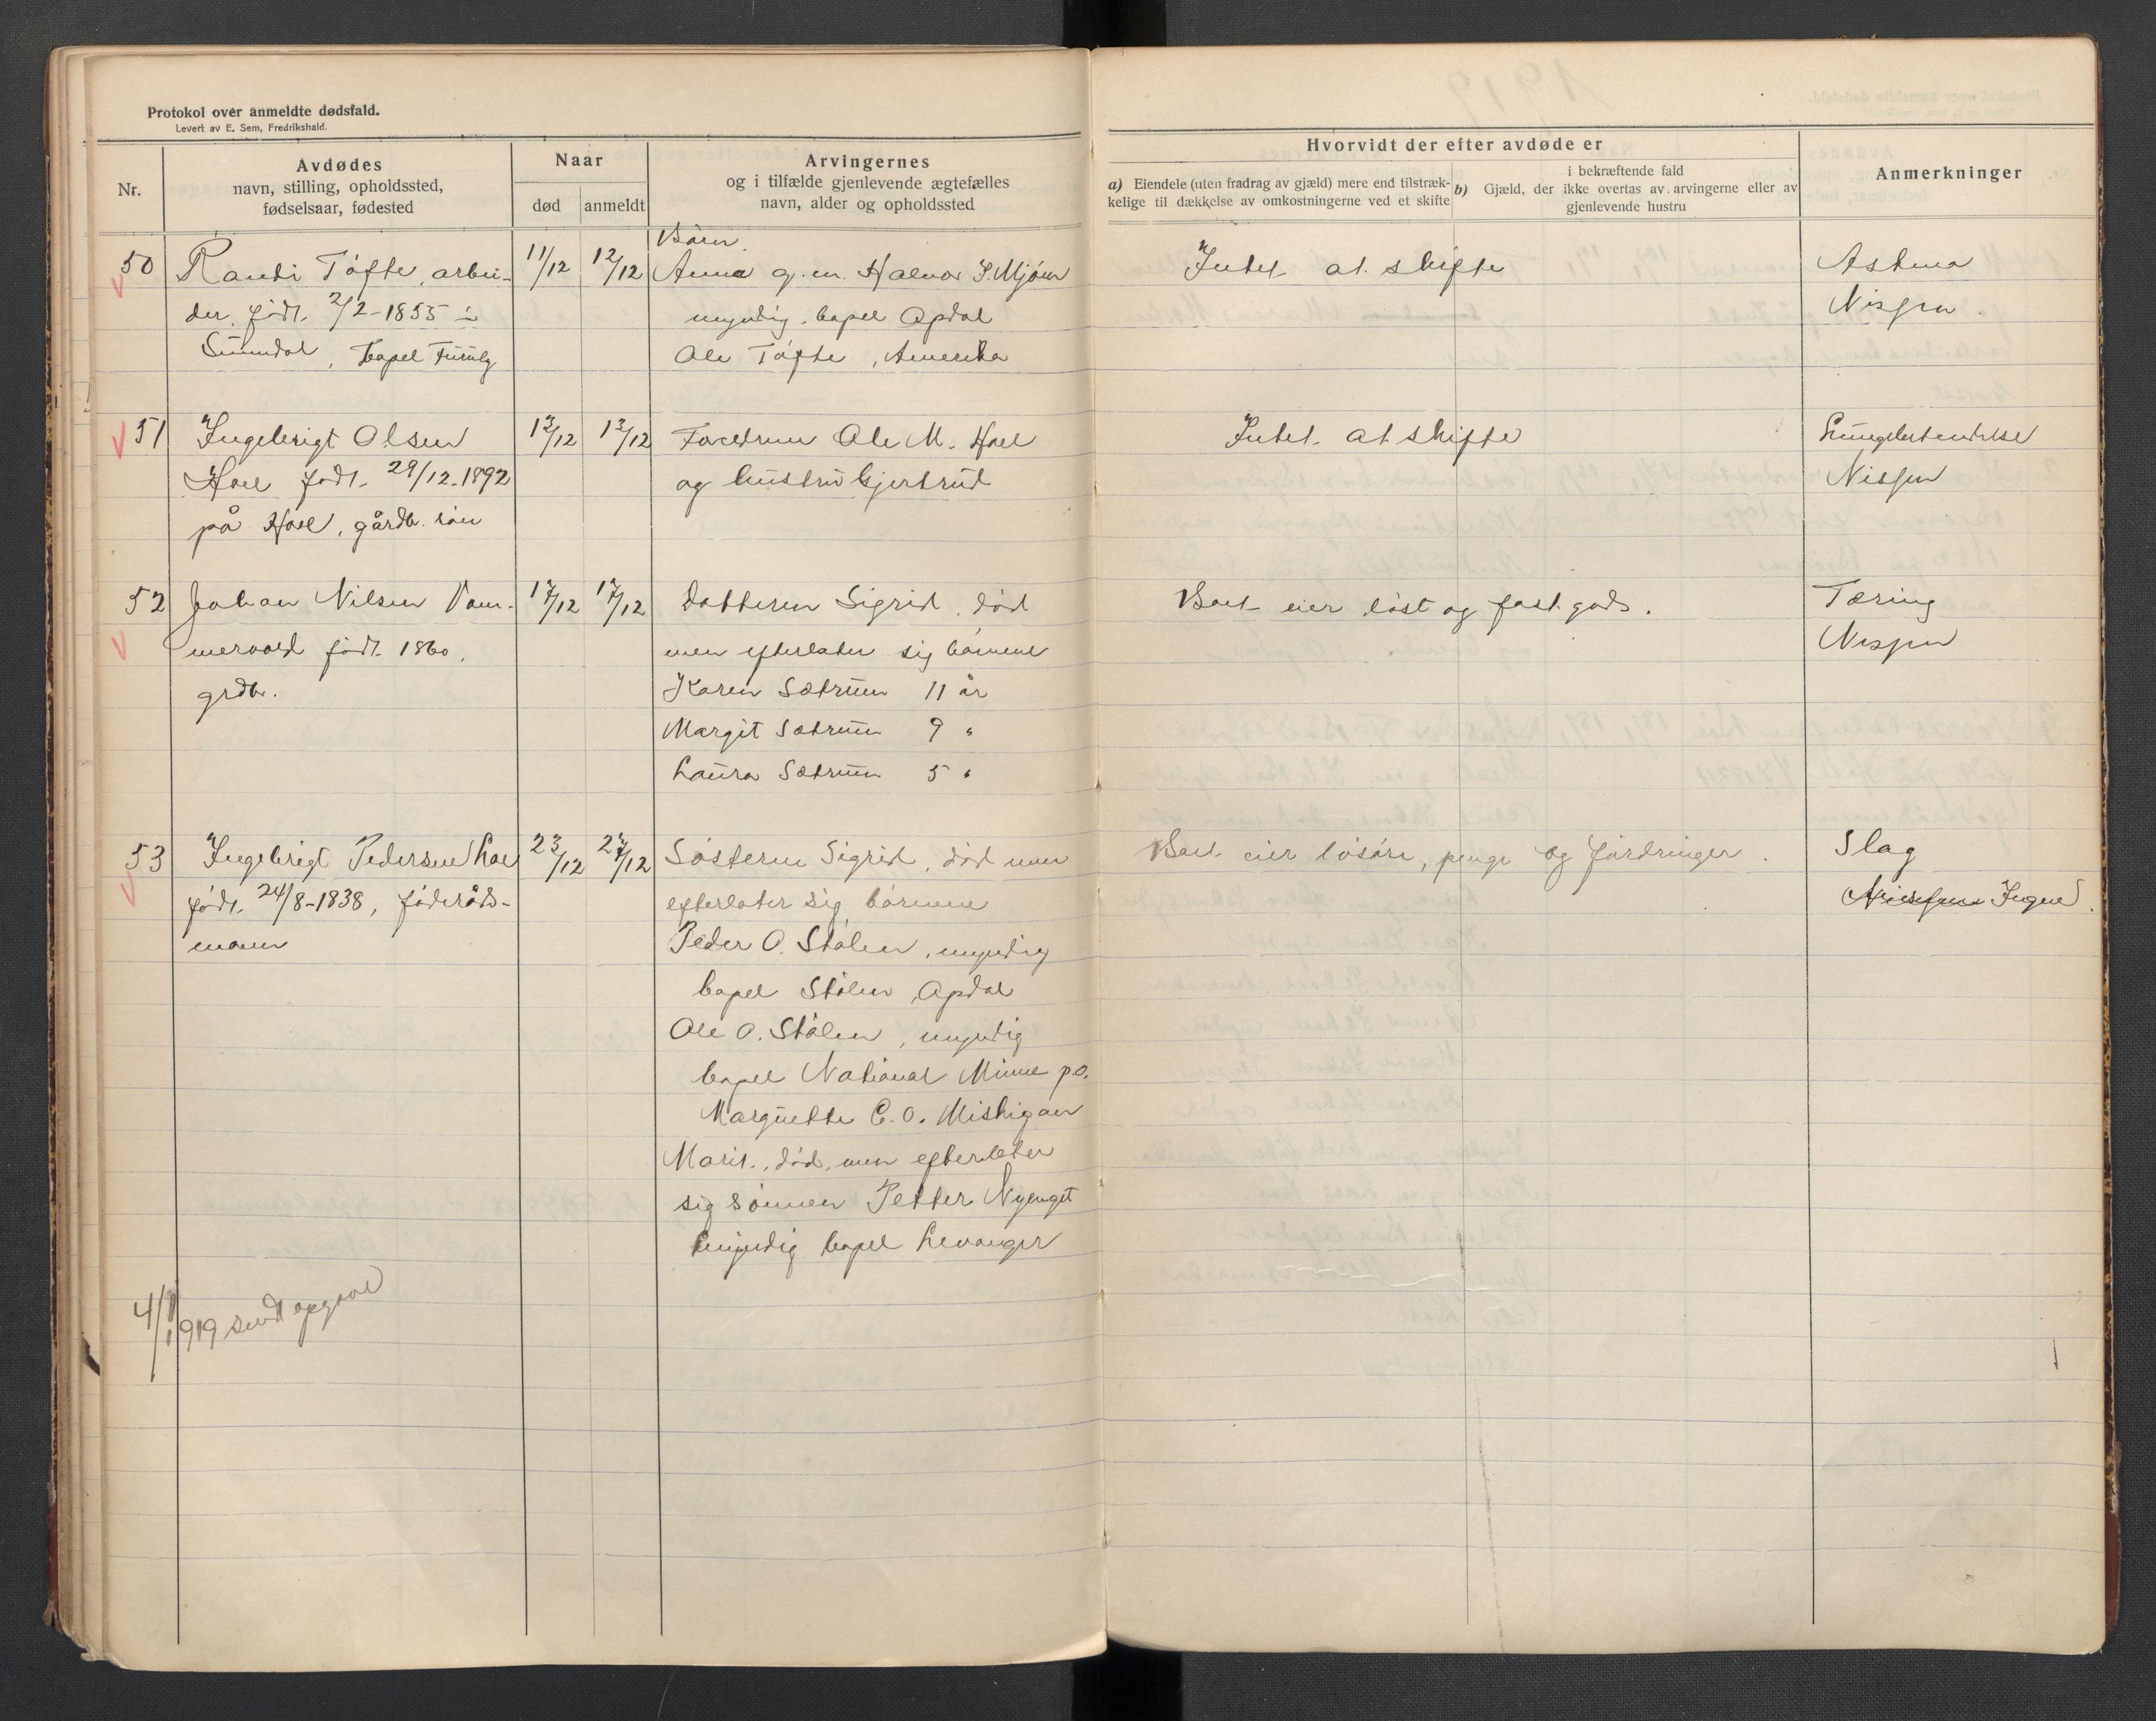 Protokol over anmeldte dødsfald.
Levert av E. Sem, Fredrikshald.
Nr.
Avdødes
navn, stilling, opholdssted,
fødselsaar, fødested
Naar
død
anmeldt
Arvingernes
og i tilfælde gjenlevende ægtefælles
navn, alder og opholdssted
Hvorvidt der efter avdøde er
a) Eiendele (uten fradrag av gjæld) mere end tilstræk-
kelige til dækkelse av omkostningerne ved et skifte
i bekræftende fald
b) Gjæld, der ikke overtas av arvingerne eller av
gjenlevende hustru
Anmerkninger
50
Randi Tøfte, arbei-
der, født 2/2-1855 i
Sunndal, bopel Furuly
11/12
12/12
Børn.
Anna g. m. Halvor I. Mjøen
myndig, bopel Opdal
Ole Tøfte, Amerika
Intet at skifte
Astma
Nissen
51
Ingebrigt Olsen
Hoel født 29/12-1892
på Hoel, gårdb. søn
12/12
13/12
Forældrene Ole M. Hoel
og hustru Gjertrud
Intet at skifte
Lungebetendelse
Nissen
52
Johan Nilsen Vam-
mervold født 1860,
grdb.
17/12
17/12
Datteren Sigrid, død
men efterlater sig børnene
Karen Sætrum 11 år
Margit Sætrum 9 "
Laura Sætrum 5 "
Boet eier løst og fast gods.
Tæring
Nissen
53
Ingebrigt Pedersen Loe
født 24/8-1838, føderåds-
mann
23/12
27/12
Søsteren Sigrid, død men
efterlater sig børnene
Peder O. Stølen, myndig
bopel Stølen, Opdal
Ole O. Stølen, myndig
bopel National Minne p.o.
Marquette C.O. Mishigan
Marit, død, men efterlater
sig sønnen Petter Nyenget
myndig bopel Levanger
Boet eier løsøre, penge og fordringer.
Slag
Nissen Ingen.
4/1 1919 sendt opgave
1919